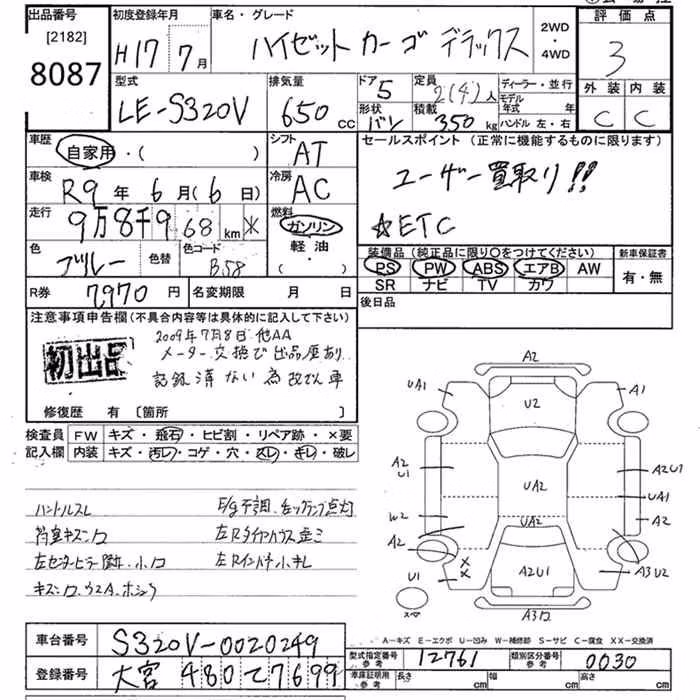 出品番号 初度登録年月 車名・グレード 評価点
[2182] 8087 H17年7月 ハイゼット カーゴ デラックス 2WD・4WD 3
型式 排気量 ドア 5 定員 2(4)人 ディーラー・並行 外装 内装
LE-S320V 650cc 形状 バン 積載 350kg モデル年式 年 C C
ハンドル 左・右
車歴 自家用・( ) シフト AT セールスポイント(正常に機能するものに限ります)
車検 R9年6月(6日) 冷房 AC ユーザー買取り!!
走行 9万8千968km 燃料 ガソリン ☆ETC
色 ブルー 色替 色コード B58 軽油・( )
装備品(純正品に限り○をつけてください) 新車保証書
PS PW ABS エアB AW 有・無
SR ナビ TV カワ
R券 7,970円 名変期限 月 日 後日品
注意事項申告欄(不具合内容等は具体的に記入して下さい)
初出品 2009年7月8日 他AA
メーター交換で出品歴あり
記録済ない為改ざん車
修復歴 有 [箇所 ]
検査員記入欄 FW キズ・飛石・ヒビ割・リペア跡・×要
内装 キズ・汚レ・コゲ・穴・スレ・キレ・破レ
ハンドルスレ E/g不調
荷室キズ
キズ
A2
UA1 U2 A1
A2 U1 UA2 A2U1
UA1
W2 UA2 A2
A2 XX
U1 A2U1 A3U2
スペア
A-キズ E-エクボ U-凹み W-補修跡 S-サビ C-腐食 XX-交換済
車台番号 S320V-0020249
型式指定番号 参考 12761 類別区分番号 参考 0030
登録番号 大宮 480 て 7699
車庫証明用 参考 長さ cm 幅 cm 高さ cm